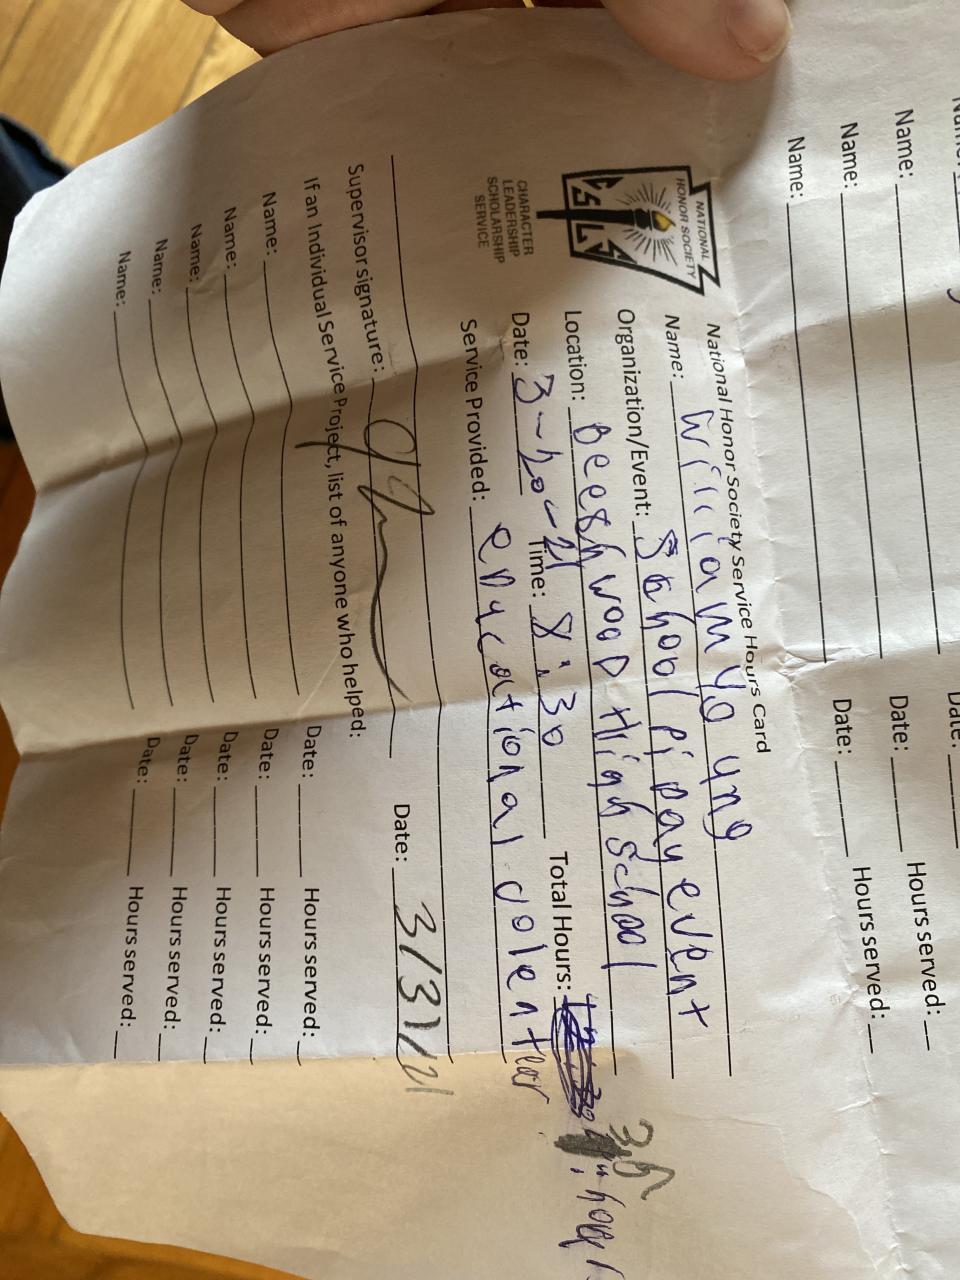 Name:
Date:
Name: Date: Hours served:
Name: Date: Hours served:
NATIONAL
HONOR SOCIETY
CSLS
CHARACTER
LEADERSHIP
SCHOLARSHIP
SERVICE
National Honor Society Service Hours Card
Name: William young
Organization/Event: School pi day event
Location: Beechwood High School
Date: 3-20-21 Time: 8:30 Total Hours: 3h hour
Service Provided: educational volenteer
Supervisor signature: Date: 3/31/21
If an Individual Service Project, list of anyone who helped:
Name: Date: Hours served:
Name: Date: Hours served:
Name: Date: Hours served:
Name: Date: Hours served:
Name: Date: Hours served: